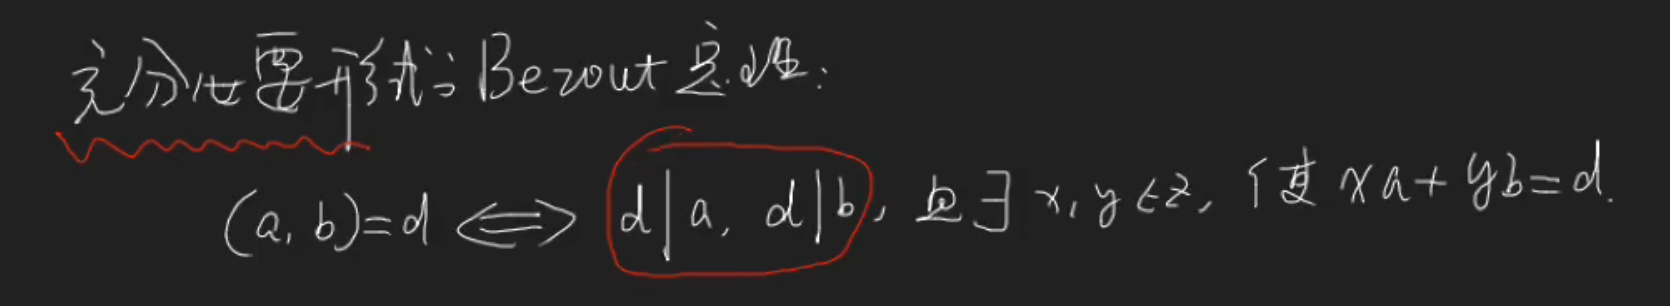 充分必要形式: Bezout定理:
(a, b)=d ⟺ d|a, d|b, 且∃x, y∈z, 使xa+yb=d.